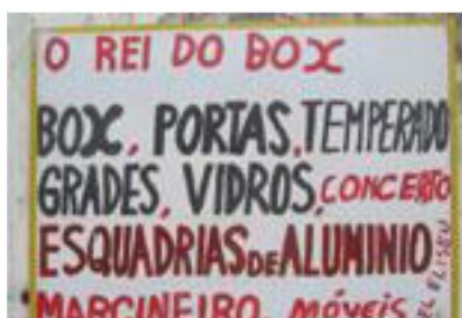 O REI DO BOX
BOX, PORTAS, TEMPERADO
GRADES, VIDROS, CONCERTO
ESQUADRIAS DE ALUMINIO
MARCINEIRO, MÓVEIS
ELISEU